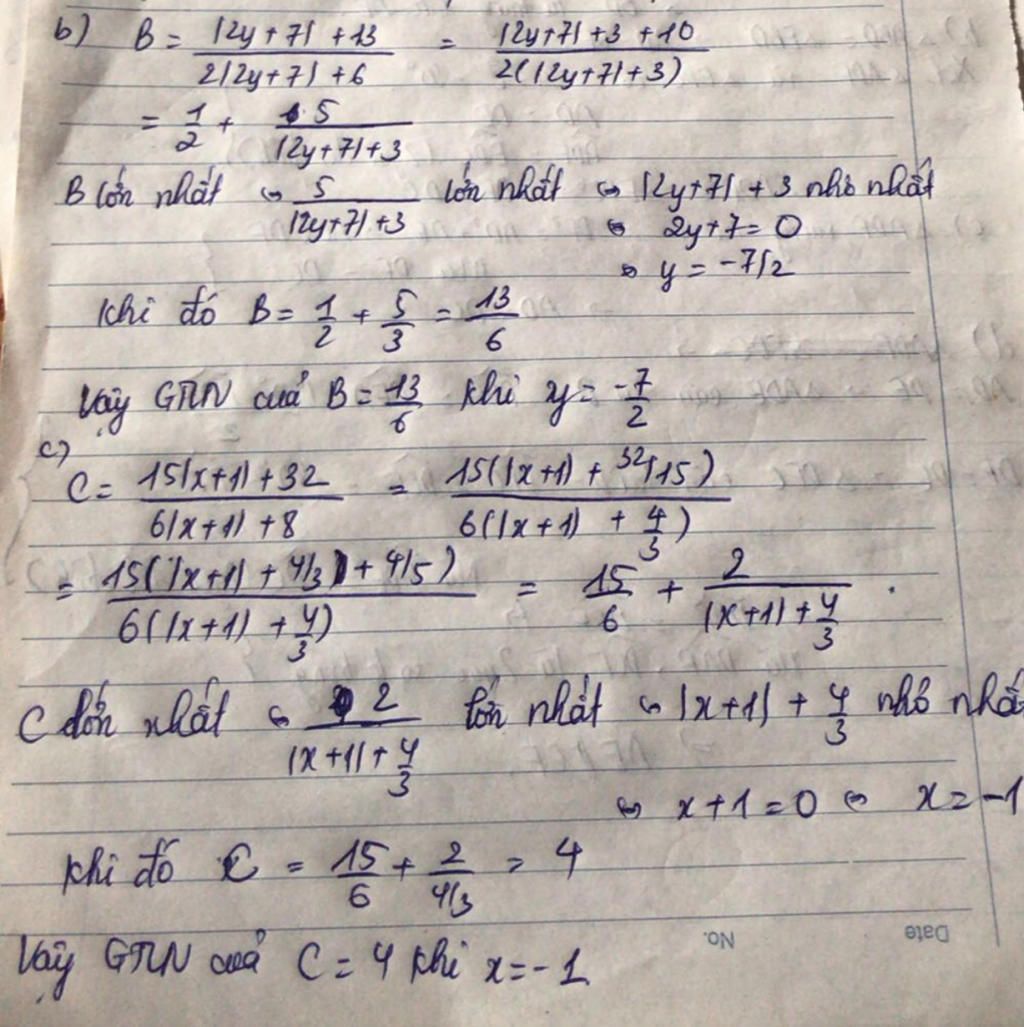 b) B = |2y+7| + 13 / 2|2y+7| + 6 = |2y+7| + 3 + 10 / 2(|2y+7| + 3)
= 1/2 + 5 / |2y+7| + 3
B lớn nhất ⇔ 5 / |2y+7| + 3 lớn nhất ⇔ |2y+7| + 3 nhỏ nhất
⇔ 2y+7 = 0
⇔ y = -7/2
Khi đó B = 1/2 + 5/3 = 13/6
Vậy GTLN cuả B = 13/6 khi y = -7/2
c)
C = 15|x+1| + 32 / 6|x+1| + 8 = 15(|x+1| + 32/15) / 6(|x+1| + 4/3)
= 15(|x+1| + 4/3) + 4/5) / 6(|x+1| + 4/3) = 15/6 + 2 / |x+1| + 4/3 .
C lớn nhất ⇔ 2 / |x+1| + 4/3 lớn nhất ⇔ |x+1| + 4/3 nhỏ nhất
⇔ x+1 = 0 ⇔ x = -1
Khi đó C = 15/6 + 2 / 4/3 = 4
Vậy GTLN cuả C = 4 khi x = -1
No.
Date